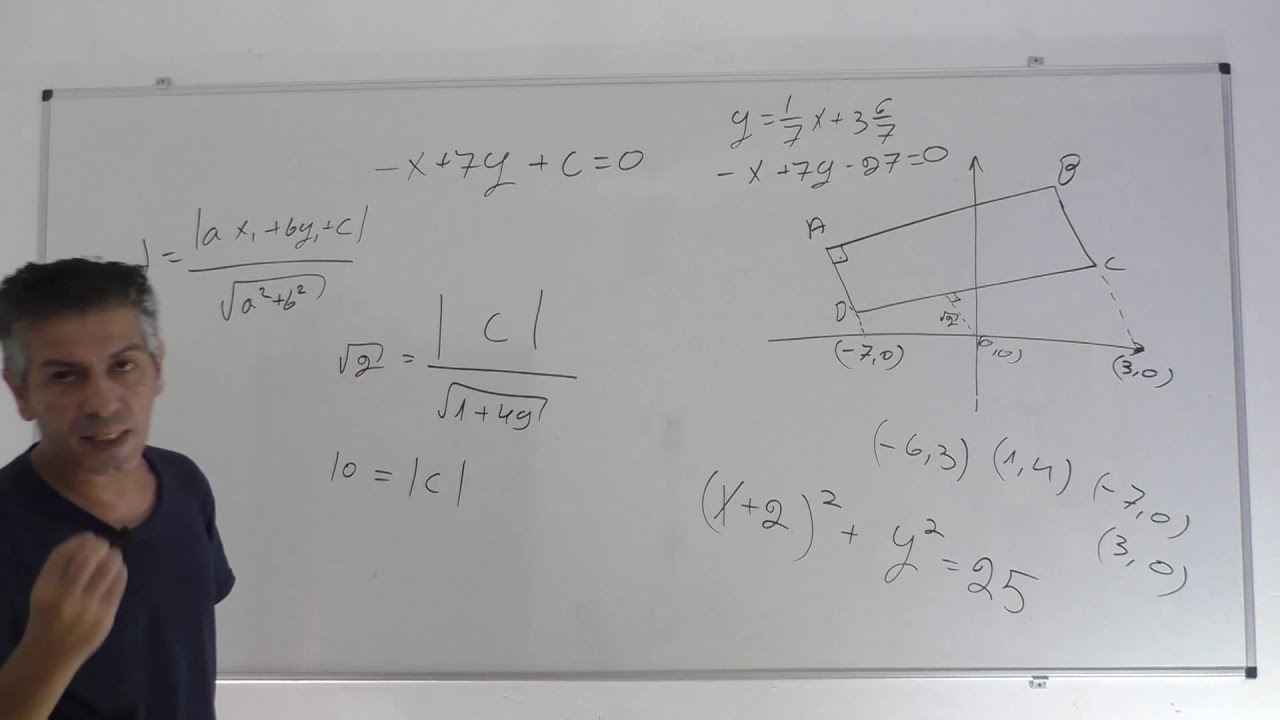 -x+7y+c=0
d = |ax₁+by₁+c| / √(a²+b²)
√2 = |c| / √(1+49)
10 = |c|
y = 1/7 x + 3 6/7
-x+7y-27=0
B
A
C
D
√2
(-7,0)
(0,0)
(3,0)
(-6,3) (1,4) (-7,0)
(3,0)
(x+2)² + y² = 25